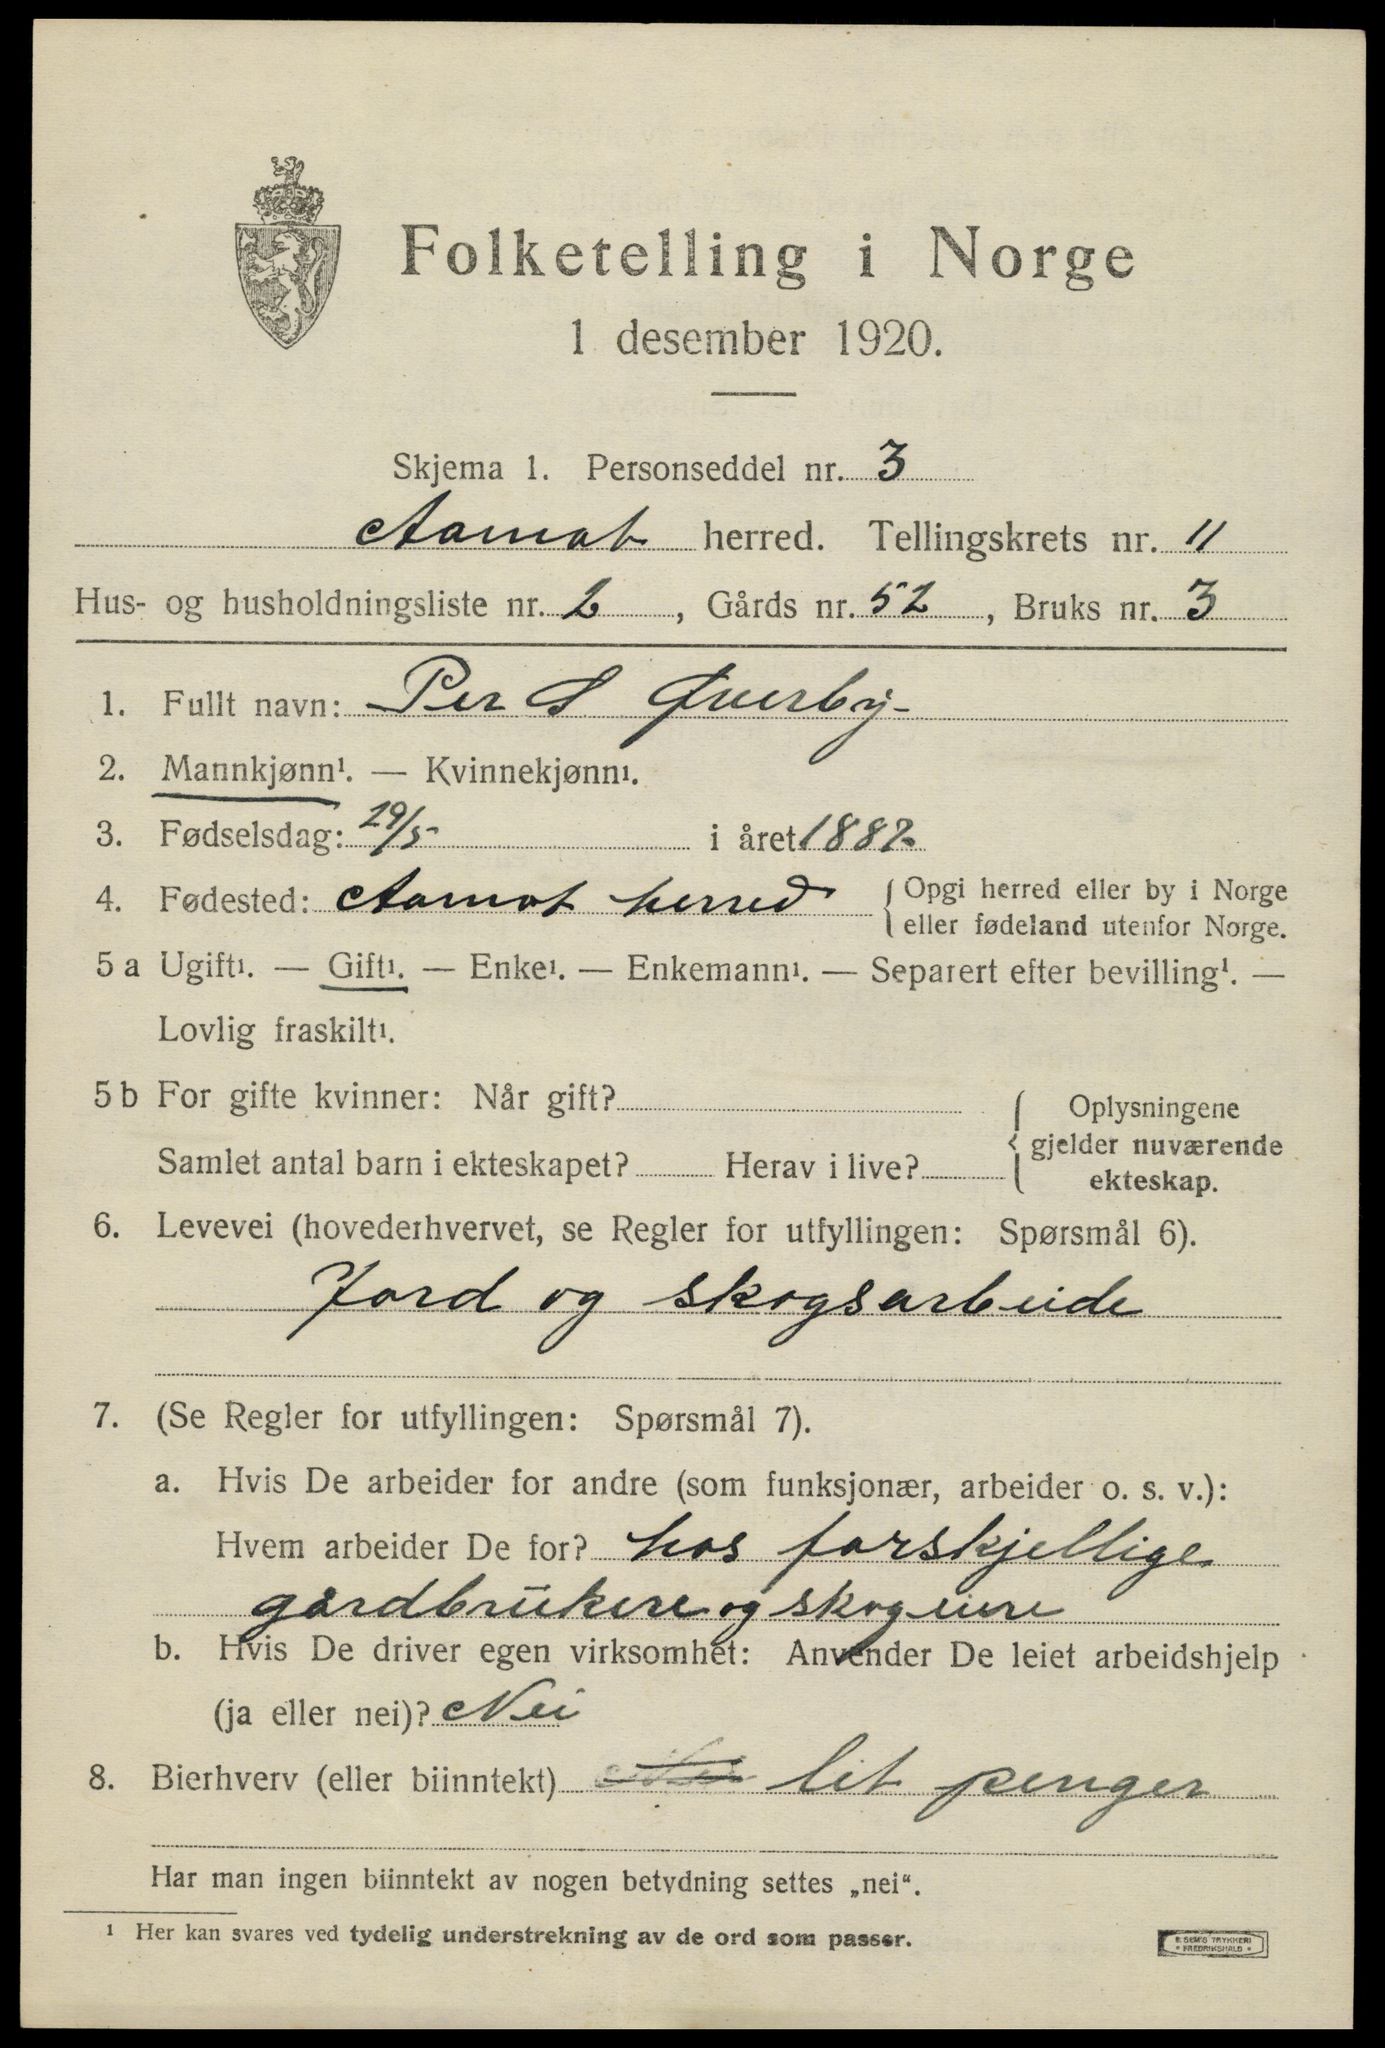 Folketelling i Norge
1 desember 1920.
Skjema 1. Personseddel nr. 3
Aamot herred. Tellingskrets nr. 11
Hus- og husholdningsliste nr. 2, Gårds nr. 52, Bruks nr. 3
1. Fullt navn: Per S Øverby
2. Mannkjønn¹. — Kvinnekjønn¹.
3. Fødselsdag: 29/5 i året 1882
4. Fødested: Aamot herred { Opgi herred eller by i Norge
eller fødeland utenfor Norge.
5 a Ugift¹. — Gift¹. — Enke¹. — Enkemann¹. — Separert efter bevilling¹. —
Lovlig fraskilt¹.
5 b For gifte kvinner: Når gift? { Oplysningene
gjelder nuværende
Samlet antal barn i ekteskapet? Herav i live?
ekteskap.
6. Levevei (hovederhvervet, se Regler for utfyllingen: Spørsmål 6).
Jord og skogsarbeide
7. (Se Regler for utfyllingen: Spørsmål 7).
a. Hvis De arbeider for andre (som funksjonær, arbeider o. s. v.):
Hvem arbeider De for? hos forskjellige
gårdbrukere og skogeiere
b. Hvis De driver egen virksomhet: Anvender De leiet arbeidshjelp
(ja eller nei)? Nei
8. Bierhverv (eller biinntekt) lit penger
Har man ingen biinntekt av nogen betydning settes „nei“.
¹ Her kan svares ved tydelig understrekning av de ord som passer.
E. SEM'S TRYKKERI
* FREDRIKSHALD *